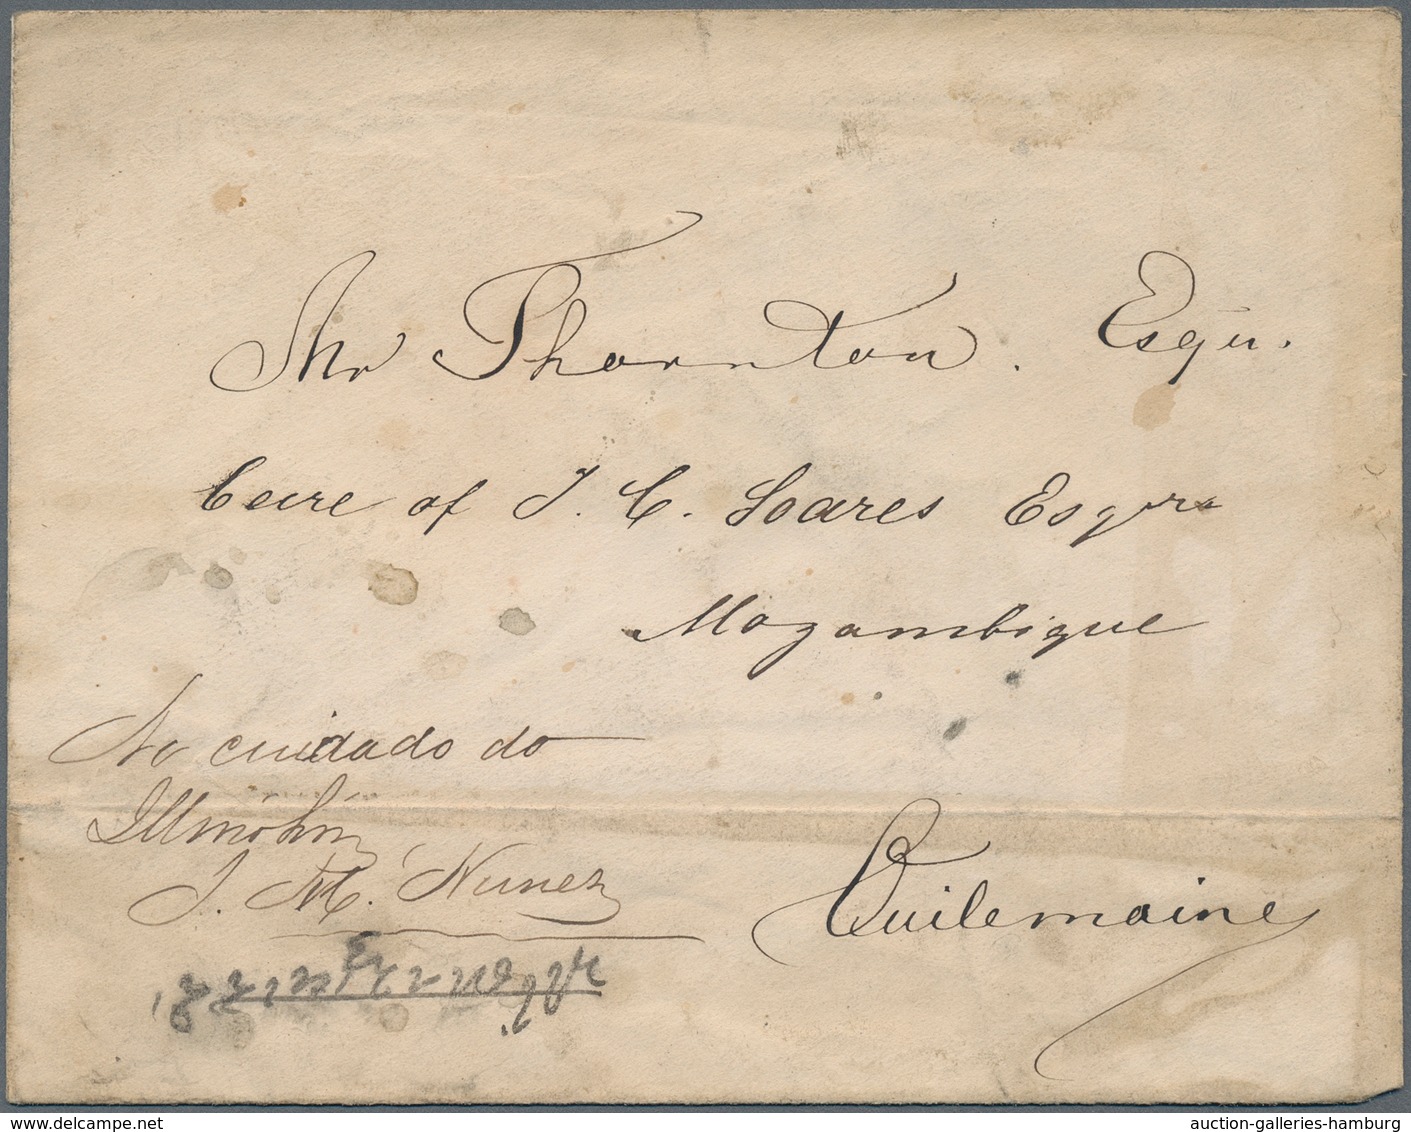 Mr Thornton. Esqu.
Care of J. C. Soares Esqre
Mozambique
Ao cuidado do
Illmo Snr
J. M. Nunez
Quilemaine
www.delcampe.net
auction-galleries-hamburg